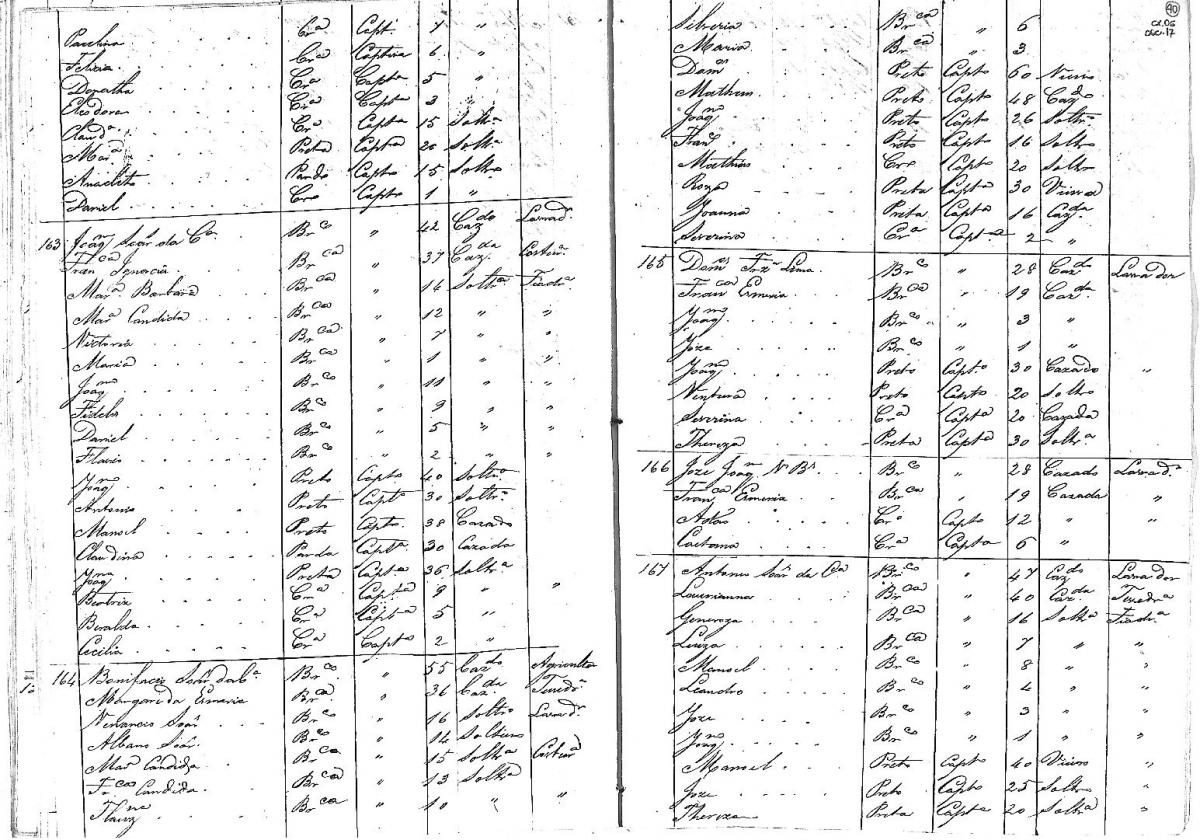 Cra Capt. 7 "
Felicia Cra Captiva 6 "
Dorotha Cra Capta 5 "
Eleodora Cra Capta 3 "
Clauda Cra Capta 15 Soltra
Mara Preta Capta 20 Soltra
Anacleto Pardo Capto 15 Soltro
Daniel Cro Capto 1 "
163 Joaqm Soar da Ca Brco " 42 Cazdo Lavradr
Franca Ignacia Brca " 37 Cazda Costura
Mara Barbara Brca " 14 Soltra Fiadra
Mara Candida Brca " 12 " "
Victoria Brca " 7 " "
Maria Brca " 1 " "
Joaqm Brco " 11 " "
Fidelis Brco " 9 " "
Daniel Brco " 5 " "
Flavio Brco " 2 " "
Joaqm Preto Capto 40 Soltro
Antonio Preto Capto 30 Soltro
Manoel Preto Capto 38 Cazado
Claudina Parda Capta 30 Cazada
Joaqna Preta Capta 36 Soltra
Beatriz Cra Capta 9 " "
Beralda Cra Capta 5 "
Cecilia Cra Capta 2 "
164 Bonifacio Soar da Ca Brco " 55 Cazdo Agricultr
Margarida Emeria Brca " 36 Cazda Tecedra
Venancio Soar Brco " 16 Soltro Lavradr
Albano Soar Brco " 14 Solteiro
Mara Candida Brca " 15 Soltra Costura
Fca Candida Brca " 13 Soltra
Brca " 10 " "
40
cx.06
doc.17
Silveria Brca " 6
Maria Brca " 3
Doms Preto Capto 60 Viuvo
Matheus Preto Capto 48 Cazdo
Joaqm Preto Capto 26 Soltro
Frano Preto Capto 16 Soltro
Mathias Cro Capto 20 Soltro
Roza Preta Capta 30 Viuva
Joanna Preta Capta 16 Cazda
Severina Cra Capta 2 "
165 Doms Frz Lima Brco " 28 Cazdo Lavrador
Franca Emeria Brca " 19 Cazda
Joaqm Brco " 3 "
Joze Brco " 1 "
Joaqm Preto Capto 30 Cazado "
Ventura Preto Capto 20 Soltro
Severina Cra Capta 20 Cazada
Thereza Preta Capta 30 Soltra
166 Joze Joaqm Brco " 28 Cazado Lavradr
Franca Emeria Brca " 19 Cazada "
Adão Cro Capto 12 " "
Caetana Cra Capta 6 "
167 Antonio Soar da Ca Brco " 47 Cazdo Lavrador
Laurianna Brca " 40 Cazda Tecedra
Generoza Brca " 16 Soltra Fiadra
Luiza Brca " 7 " "
Manoel Brco " 8 " "
Leandro Brco " 4 " "
Joze Brco " 3 " "
Joaqm Brco " 1 " "
Manoel Preto Capto 40 Viuvo "
Joze Preto Capto 25 Soltro "
Thereza Preta Capta 20 Soltra "